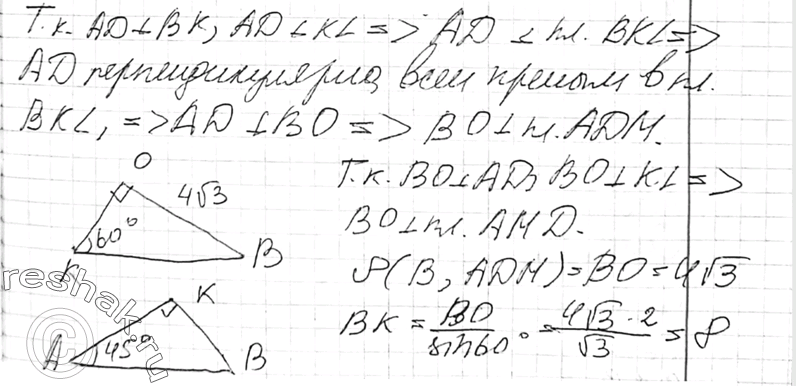 Т.к. AD⊥BK, AD⊥KL => AD ⊥ пл. BKL =>
AD перпендикулярна всем прямым в пл.
BKL, => AD⊥BO => BO⊥пл. ADM.
O
4√3
60°
K
B
Т.к. BO⊥AD, BO⊥KL =>
BO⊥пл. AMD.
ρ(B, ADM) = BO = 4√3
BK = BO/sin60° = 4√3·2/√3 = 8
K
A
45°
B
reshak.ru
©